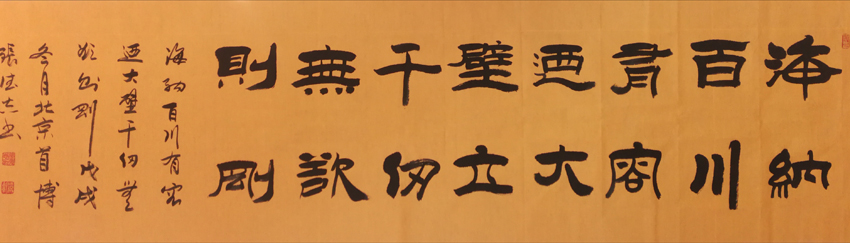 海納
百川
有容
迺大
壁立
千仞
無欲
則剛
海納百川有容
迺大壁千仞無
欲則剛戊戌
冬月北京首博
張志书